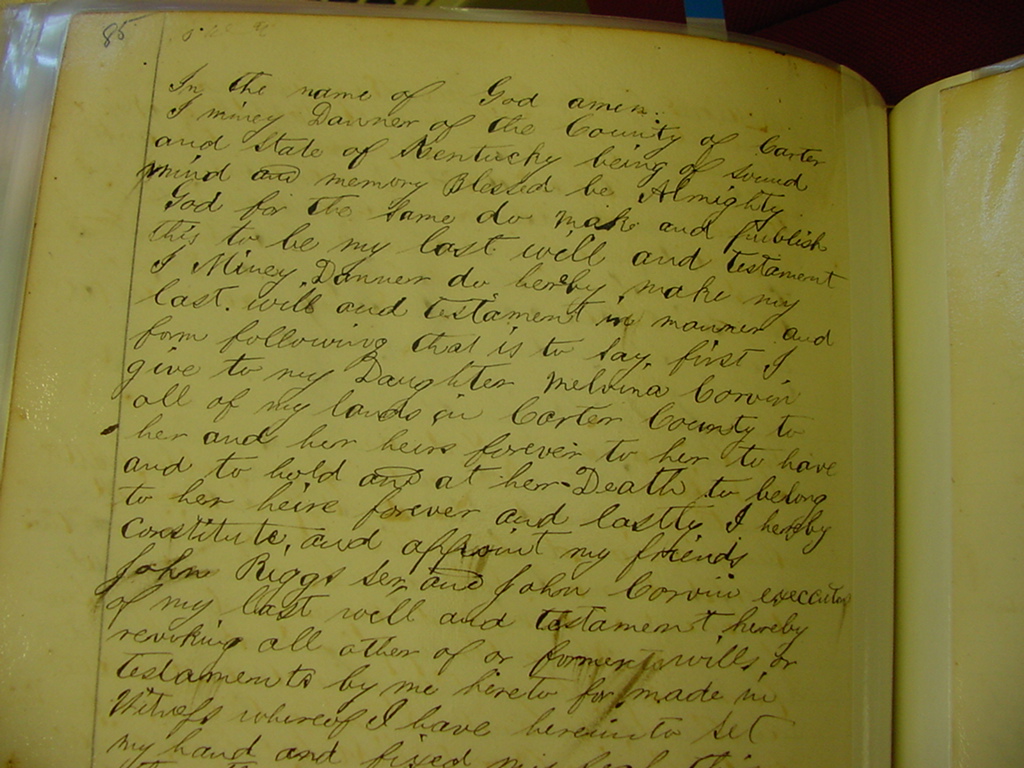 85
In the name of God amen.
I mincy Danner of the County of Carter
and State of Kentucky being of sound
mind and memory Blessd be Almighty
God for the same do make and publish
this to be my last will and testament
I Mincy Danner do hereby make my
last will and testament in manner and
form following that is to say first I
give to my Daughter Melvina Corvin
all of my lands in Carter County to
her and her heirs forever to her to have
and to hold and at her Death to belong
to her heirs forever and lastly I hereby
Constitute and appoint my friends
John Riggs sen and John Corvin executors
of my last will and testament hereby
revoking all other of or former wills or
testaments by me hereto for made in
Witness whereof I have hereunto set
my hand and fixed my seal this